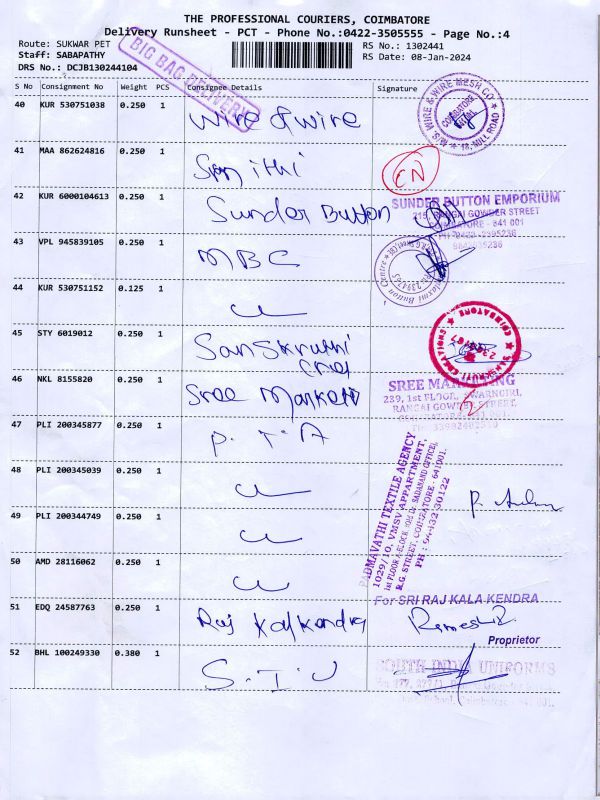 THE PROFESSIONAL COURIERS, COIMBATORE
Delivery Runsheet - PCT - Phone No.:0422-3505555 - Page No.:4
Route: SUKWAR PET
RS No.: 1302441
Staff: SABAPATHY
RS Date: 08-Jan-2024
DRS No.: DCJB130244104
BIG BAG DELIVERY
S No Consignment No Weight PCS Consignee Details Signature
40 KUR 530751038 0.250 1 Wire & Wire
M/S. WIRE & WIRE MESH CO. COIMBATORE MILL ROAD
41 MAA 862624816 0.250 1
CN
42 KUR 6000104613 0.250 1 Sunder Button
SUNDER BUTTON EMPORIUM
GOWDER STREET
COIMBATORE - 641 001
43 VPL 945839105 0.250 1 MBC
Button Centre
44 KUR 530751152 0.125 1
45 STY 6019012 0.250 1 Sanskruthi
SANSKRUTI CREATIONS COIMBATORE
46 NKL 8155820 0.250 1 Sree Marketi
SREE MARKETING
239, 1st FLOOR, SWARNGIRI,
RANGAI GOWDER STREET,
47 PLI 200345877 0.250 1 P. T. A
PADMAVATHI TEXTILE AGENCY
1029/10, VMSV APPARTMENT,
R.G. STREET, COIMBATORE - 641001.
PH : 94432 30122
48 PLI 200345039 0.250 1
49 PLI 200344749 0.250 1
50 AMD 28116062 0.250 1
51 EDQ 24587763 0.250 1 Raj Kalkendra
For SRI RAJ KALA KENDRA
Ramesh
Proprietor
52 BHL 100249330 0.380 1 S.I.U
SOUTH INDIA UNIFORMS